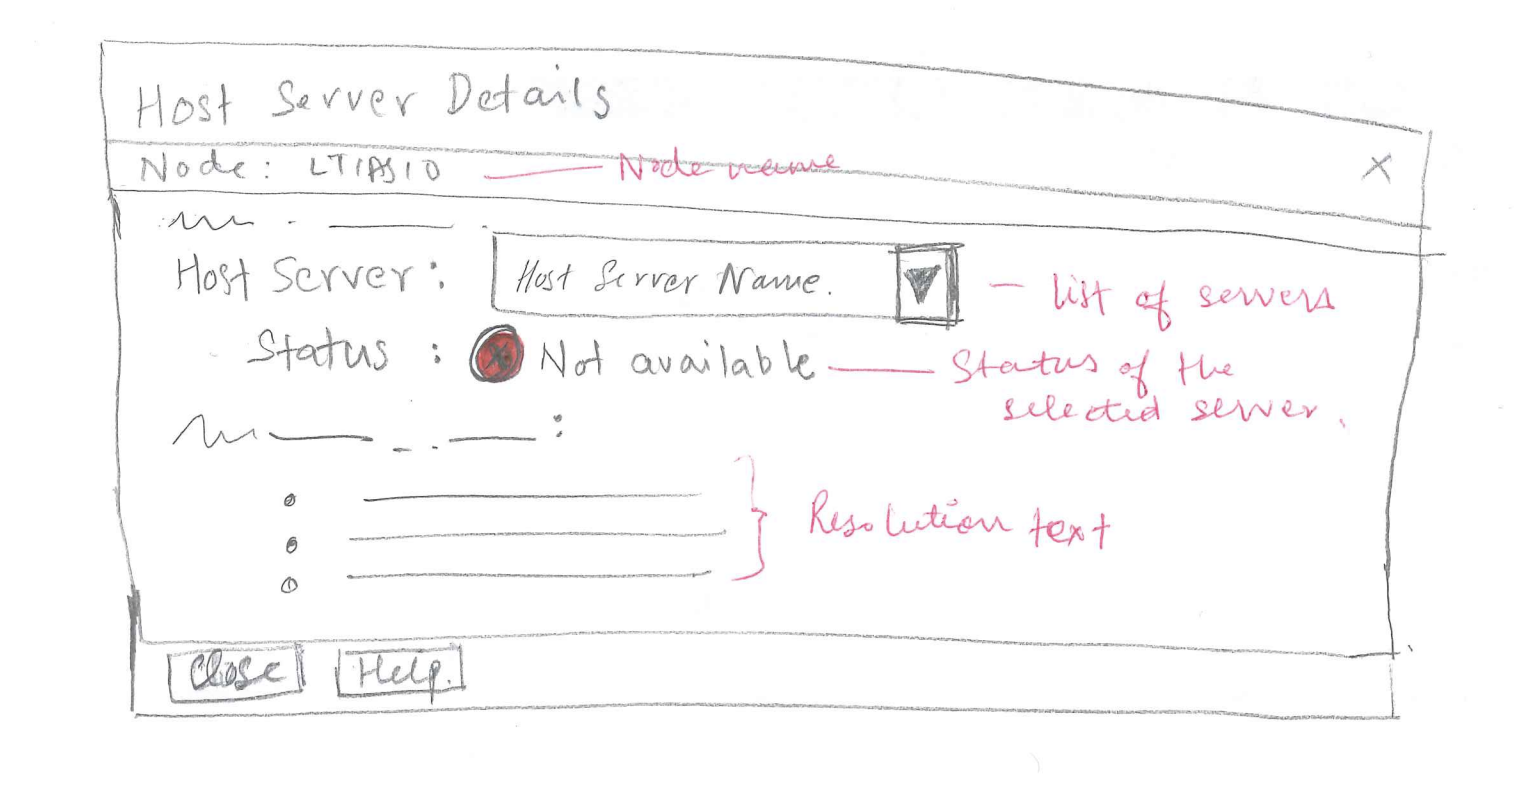 Host Server Details
Node: LTIPS10 Node name X
Host Server: Host Server Name. - list of servers
Status : X Not available Status of the
selected server.
Resolution text
Close Help.